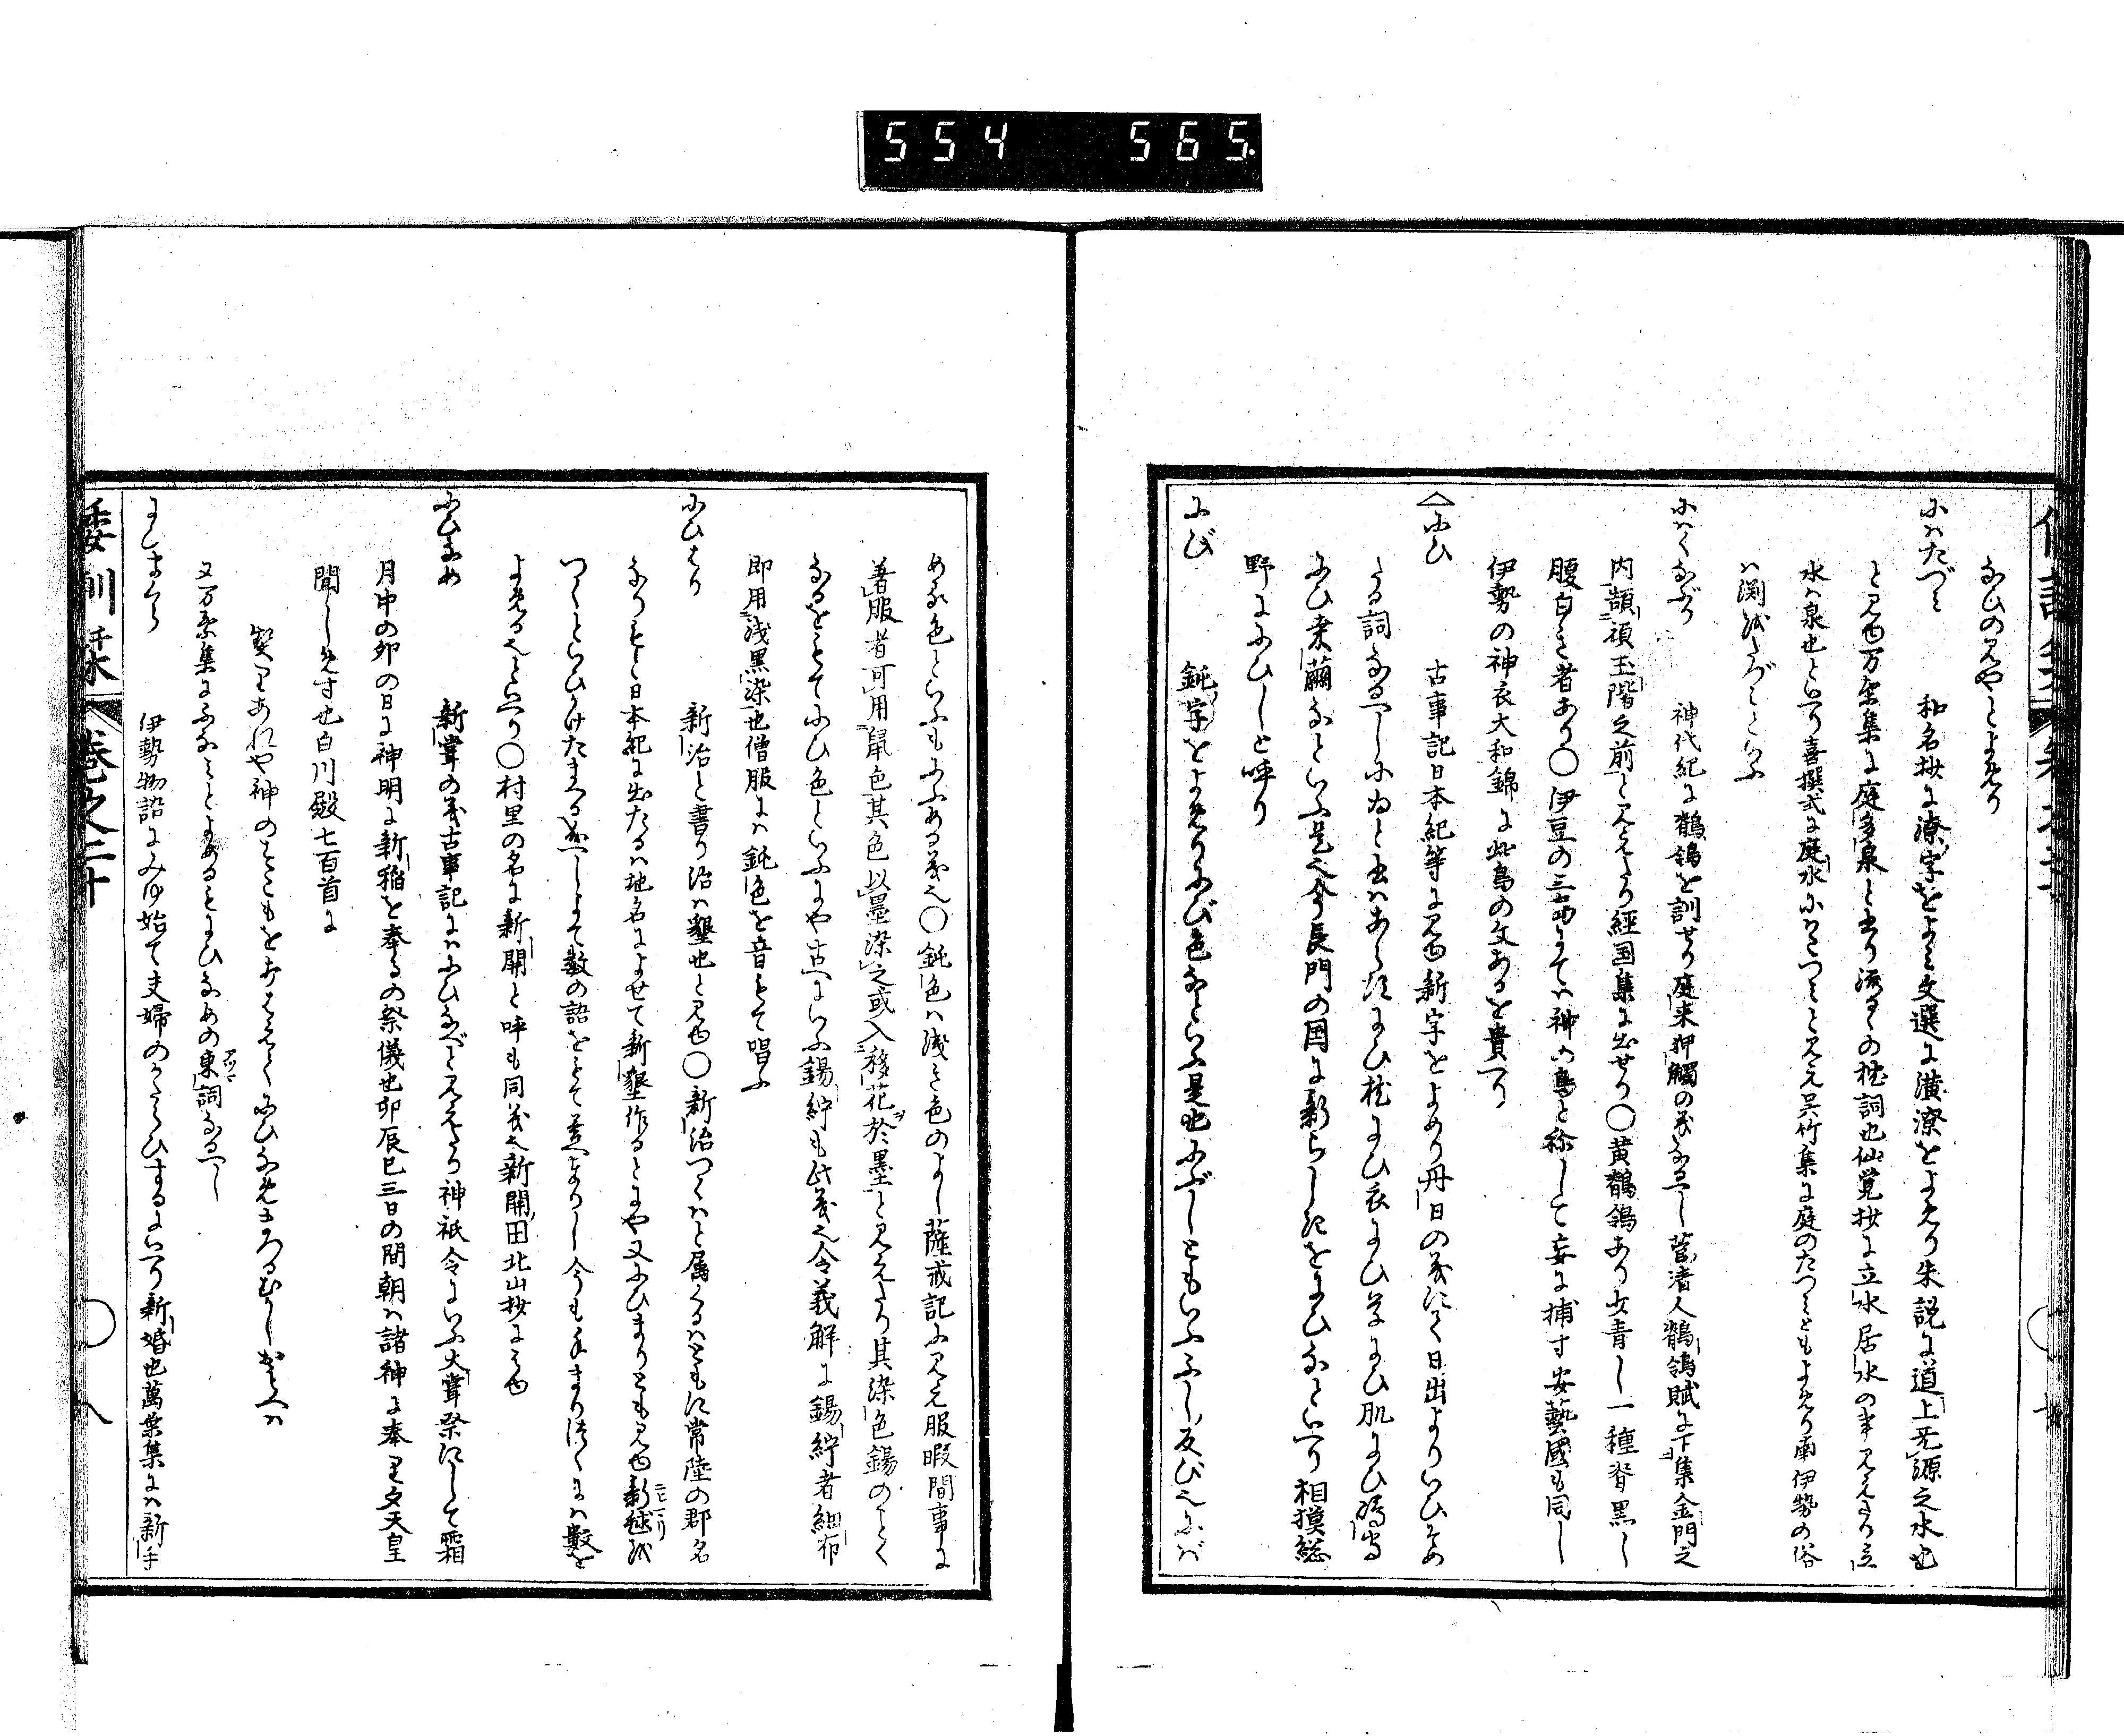 554 565
なひのみやとよめり
にはたづみ 和名抄に潦字をよみ文選に潢潦をよめり朱説に道上无源之水也
と見ゆ万葉集に庭多泉と書り流るゝの枕詞也仙覚抄に立水居水の事見えたり立
水は泉也といへり喜撰式に庭水にはたつみと見え呉竹集に庭のたつみともよめり南伊勢の俗
は淵をたづみといふ
にはくなぶり 神代紀に鶺鴒を訓せり庭来狎觸の義なるべし菅清人鶺鴒賦に下集金門之
内顡項玉階之前と見えたり経国集に出せり〇黄鶺鴒あり女青し一種背黒し
腹白き者あり〇伊豆の三島にては神の鳥と称して妄に捕す安藝國も同し
伊勢の神衣大和錦に此鳥の文あるを貴べり
にひ 古事記日本紀等に見ゆ新字をよめり丹日の義にて日出よりいひそめ
たる詞なるべしにゐと書はあしゝにひ枕にひ衣にひ草にひ肌にひ嶋守
にひ桑繭なといふ是也今長門の国に新らしきをにひなといへり相摸総
野ににひしと呼り
にび 鈍字をよめりにび色なといふ是也にぶしともいふふし反び也にば
める色といふもにふめる義也〇鈍色は浅き色のよし薩戒記に見え服暇間事に
著服者可用鼠色其色以墨染之或入移花於墨と見えたり其染色錫のことく
なるをもてにひ色といふにや古へにいふ錫紵も此義也令義解に錫紵者細布
即用浅黒染也僧服には鈍色を音もて唱ふ
にひはり 新治と書り治は墾也と見ゆ〇新治つくはと属くるはともに常陸の郡名
なりもと日本紀に出たるは地名によせて新墾作るとにや又にひまりとも見ゆ新毬を
つくといひかけたまへる成へしよて数の語をもて答へまゐりし今も手まりつくには數を
よめる也といへり〇村里の名に新開と呼も同義也新開田北山抄にみゆ
にひなめ 新嘗の義古事記にはにひなべと見えたり神祇令にいふ大嘗祭にして霜
月中の卯の日に神明に新稲を奉るの祭儀也卯辰巳三日の間朝は諸神に奉り夕天皇
聞しめす也白川殿七百首に
契りあれや神のすこもをおきならしにひなめまつるむかしおもへは
又万葉集にふなみとよめるもにひなめの東詞なるへし
にひまくら 伊勢物語にみゆ始て夫婦のかたらひするにいへり新婚也萬葉集には新手
倭訓栞 巻之二十 八